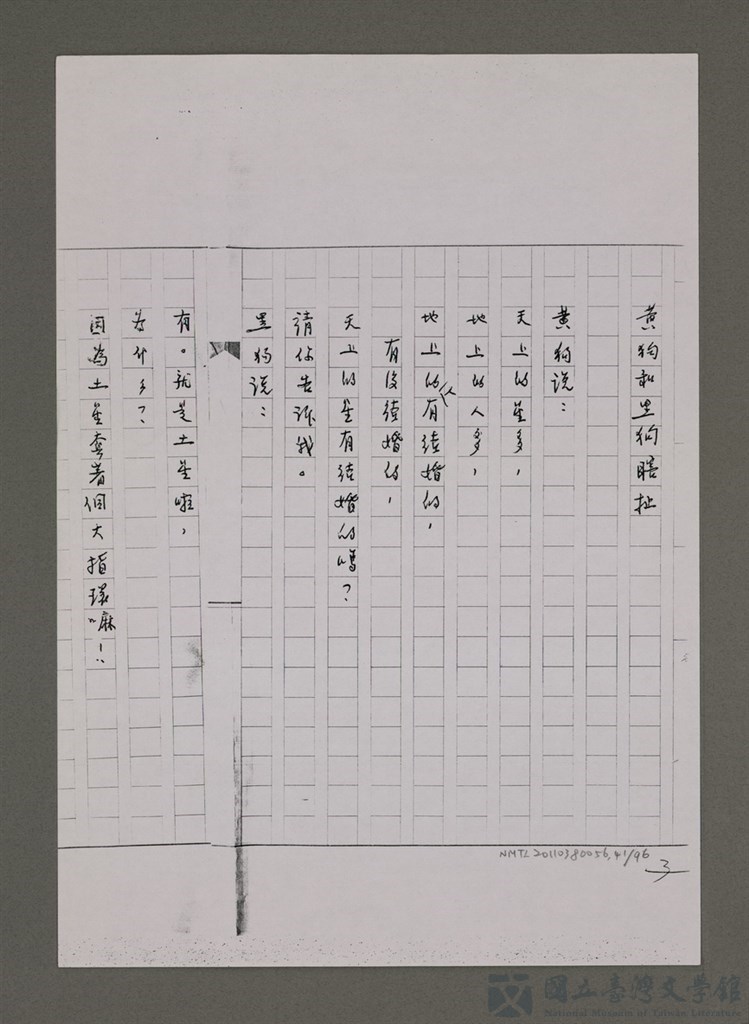 黃狗和黑狗瞎扯
黃狗说：
天上的星多，
地上的人多，
地上的人有结婚的，
有沒结婚的，
天上的星有结婚的嗎？
請你告诉我。
黑狗说：
有。就是土星啦，
为什么？
因為土星套著個大指環嘛！
NMTL20110380056,41/96
3
國立臺灣文學館
National Museum of Taiwan Literature